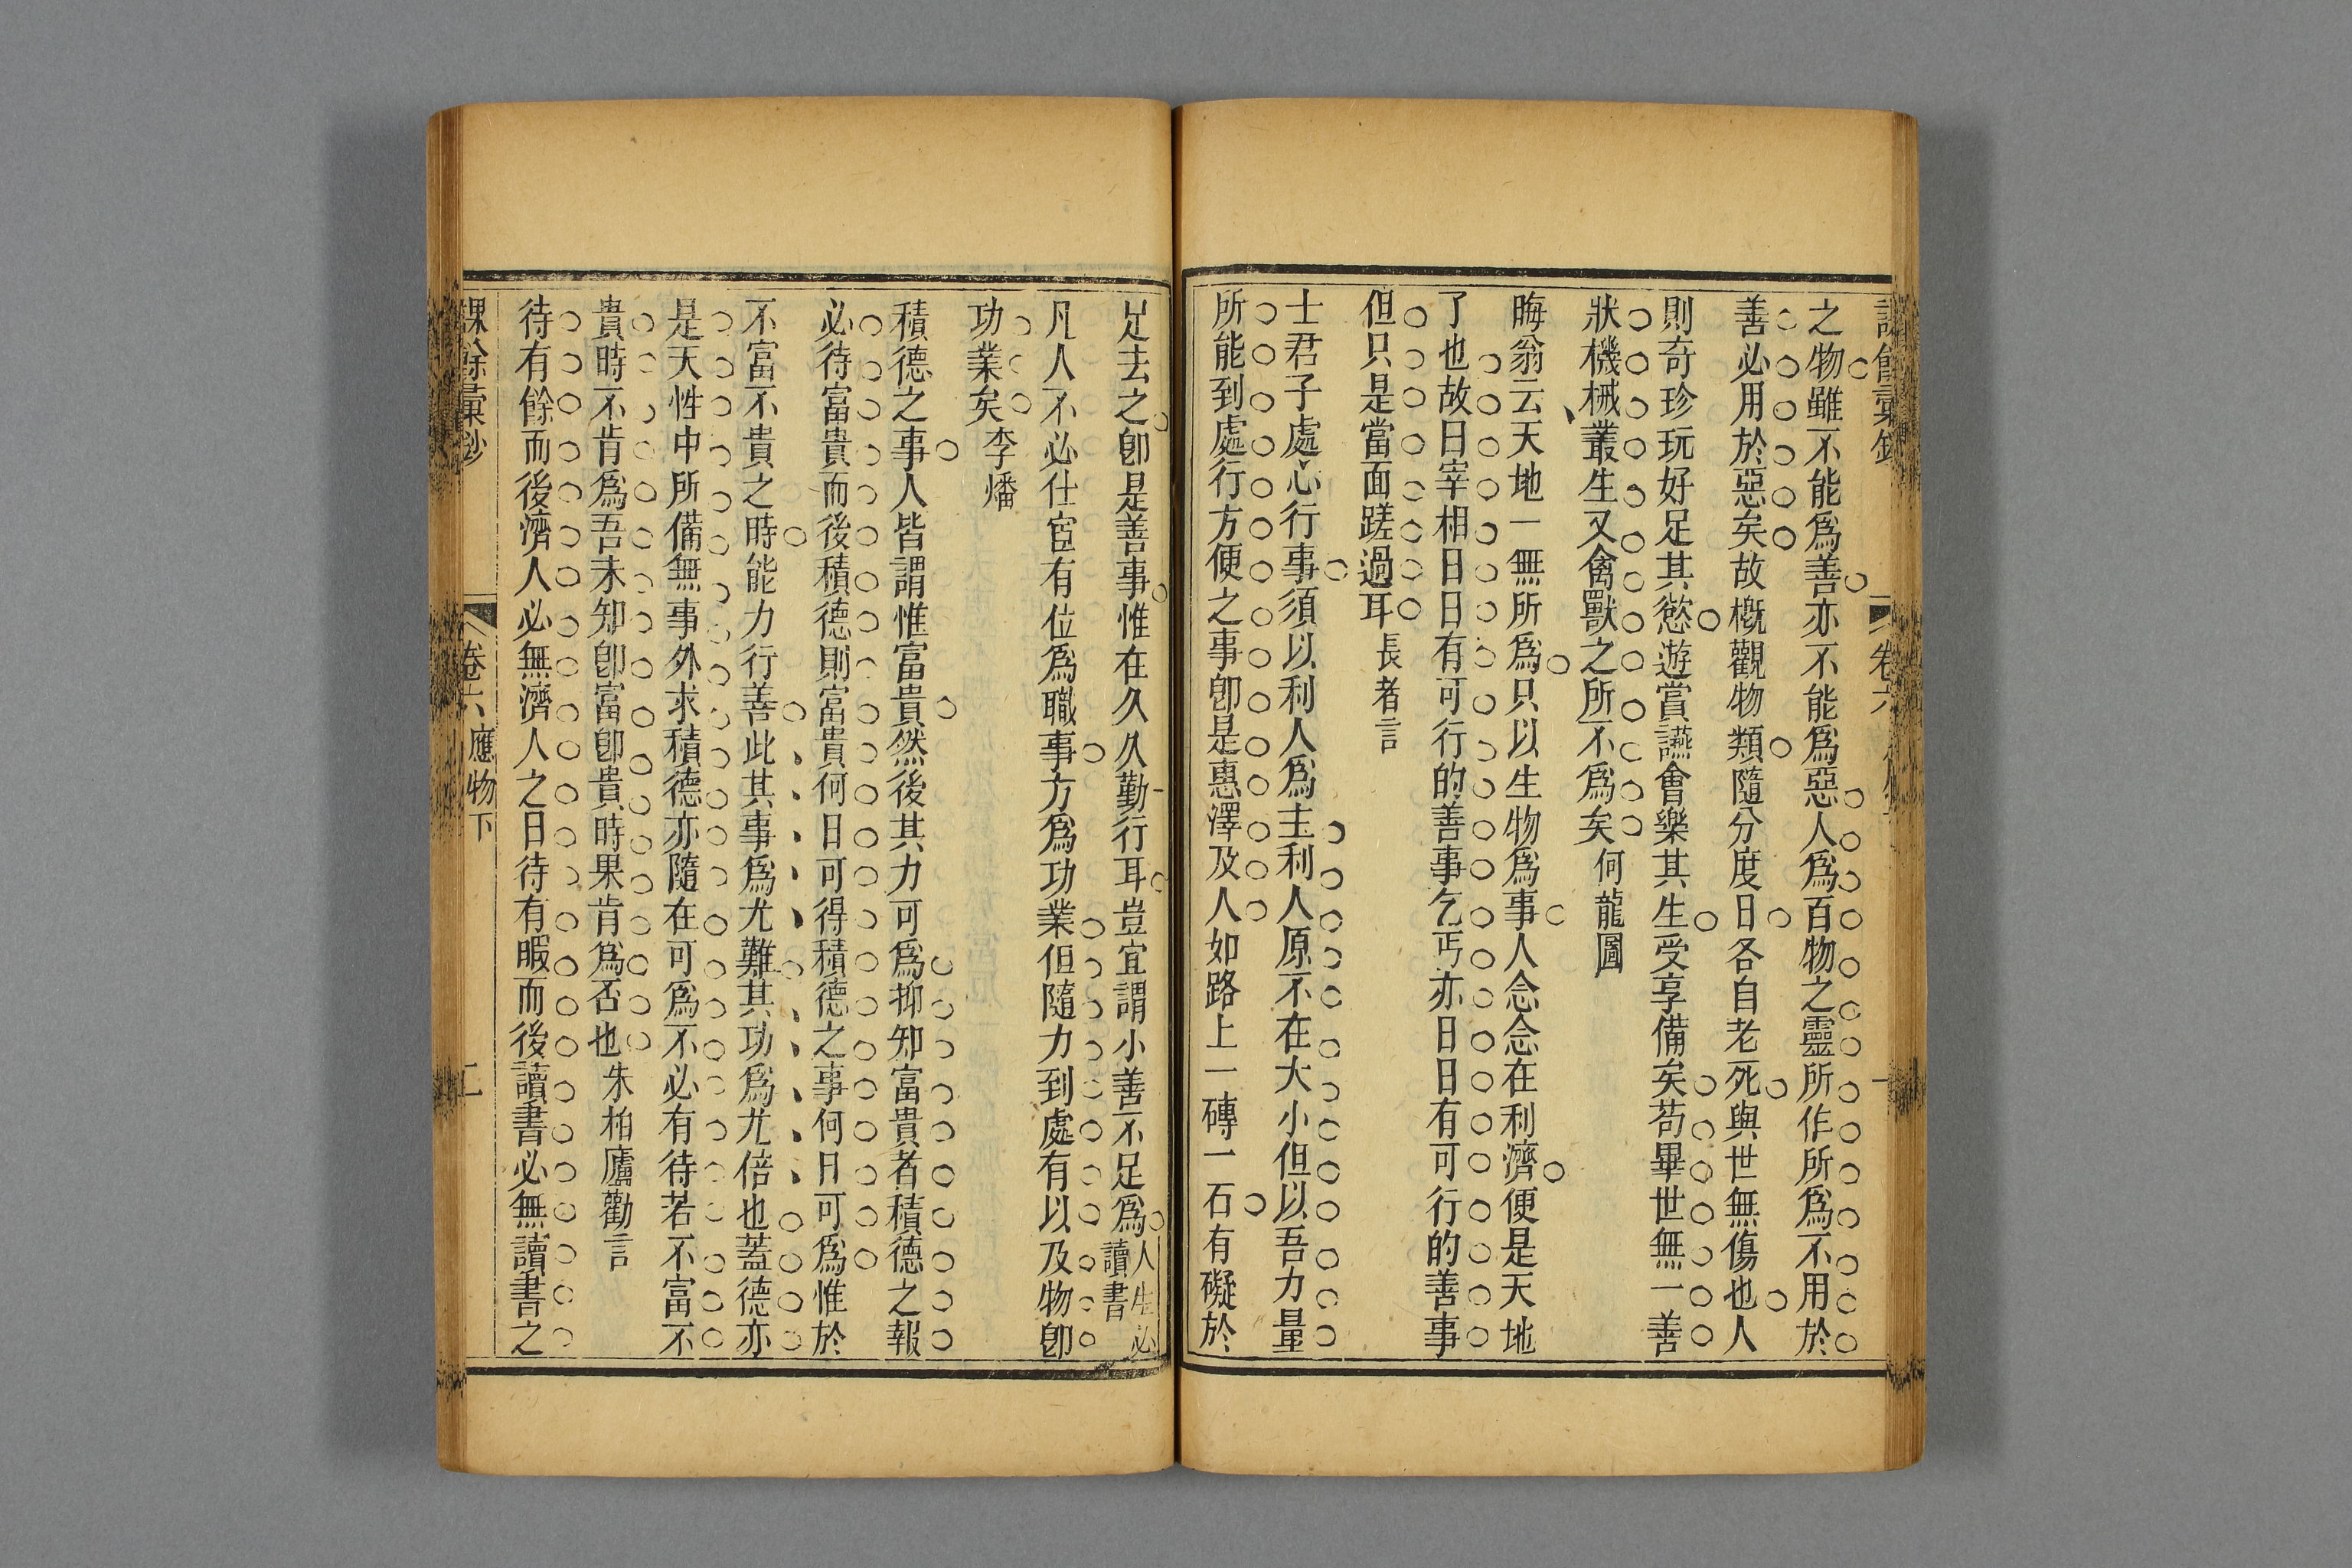 之物雖不能爲善亦不能爲惡人爲百物之靈所作所爲不用於
善必用於惡矣故槪觀物類隨分度日各自老死與世無傷也人
則奇珍玩好足其慾遊賞讌會樂其生受享備矣苟畢世無一善
狀機械叢生又禽獸之所不爲矣何龍圖
晦翁云天地一無所爲只以生物爲事人念念在利濟便是天地
了也故曰宰相日日有可行的善事乞丐亦日日有可行的善事
但只是當面蹉過耳長者言
士君子處心行事須以利人爲主利人原不在大小但以吾力量
所能到處行方便之事卽是惠澤及人如路上一磚一石有礙於
足去之卽是善事惟在久久勤行耳豈宜謂小善不足爲人生必讀書
凡人不必仕宦有位爲職事方爲功業但隨力到處有以及物卽
功業矣李燔
積德之事人皆謂惟富貴然後其力可爲抑知富貴者積德之報
必待富貴而後積德則富貴何日可得積德之事何日可爲惟於
不富不貴之時能力行善此其事爲尤難其功爲尤倍也蓋德亦
是天性中所備無事外求積德亦隨在可爲不必有待若不富不
貴時不肯爲吾未知卽富卽貴時果肯爲否也朱柏廬勸言
待有餘而後濟人必無濟人之日待有暇而後讀書必無讀書之
課餘彙鈔 卷六應物下 二